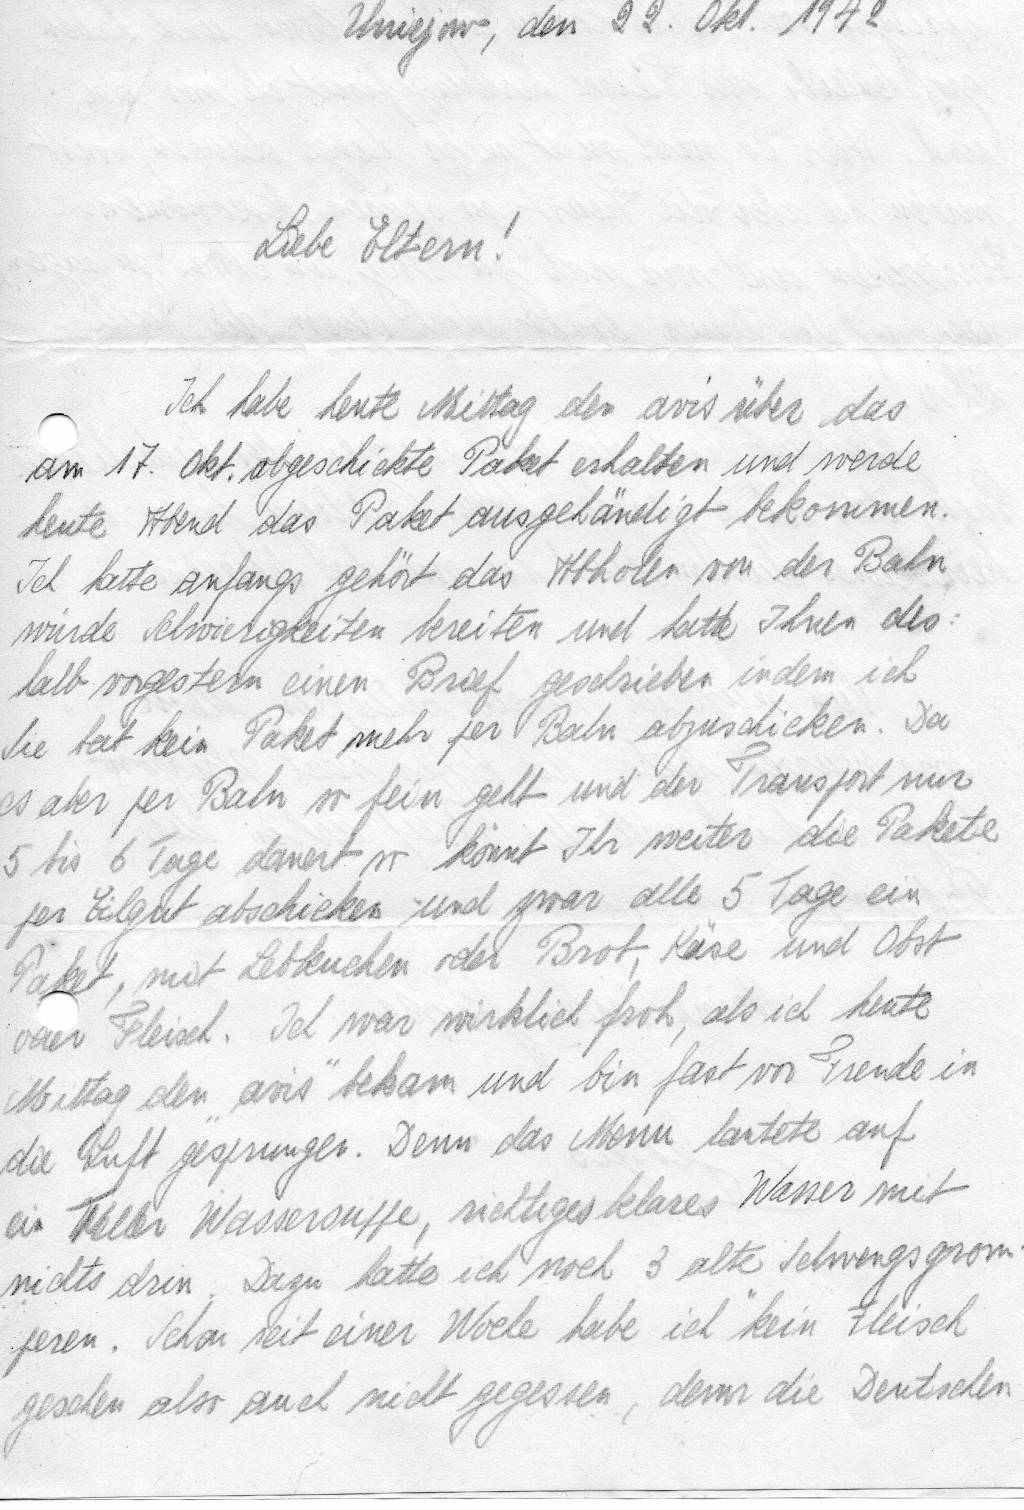 Uniejow, den 22. Okt. 1942
Liebe Eltern!
Ich habe heute Mittag den avis über das
am 17. Okt. abgeschickte Paket erhalten und werde
heute Abend das Paket ausgehändigt bekommen.
Ich hatte anfangs gehört das Abholen von der Bahn
würde Schwierigkeiten bereiten und hatte Ihnen des:
halb vorgestern einen Brief geschrieben indem ich
Sie bat kein Paket mehr per Bahn abzuschicken. Da
es aber per Bahn so fein geht und der Transport nur
5 bis 6 Tage dauert so könnt Ihr weiter die Pakete
per Eilgut abschicken und zwar alle 5 Tage ein
Paket, mit Lebkuchen oder Brot, Käse und Obst
oder Fleisch. Ich war wirklich froh, als ich heute
Mittag den „avis" bekam und bin fast vor Freude in
die Luft gesprungen. Denn das Menu lautete auf
ein Teller Wassersuppe, richtiges klares Wasser mit
nichts drin. Dazu hatte ich noch 3 alte Schwengsgrom-
peren. Schon seit einer Woche habe ich kein Fleisch
gesehen also auch nicht gegessen, denn die Deutschen